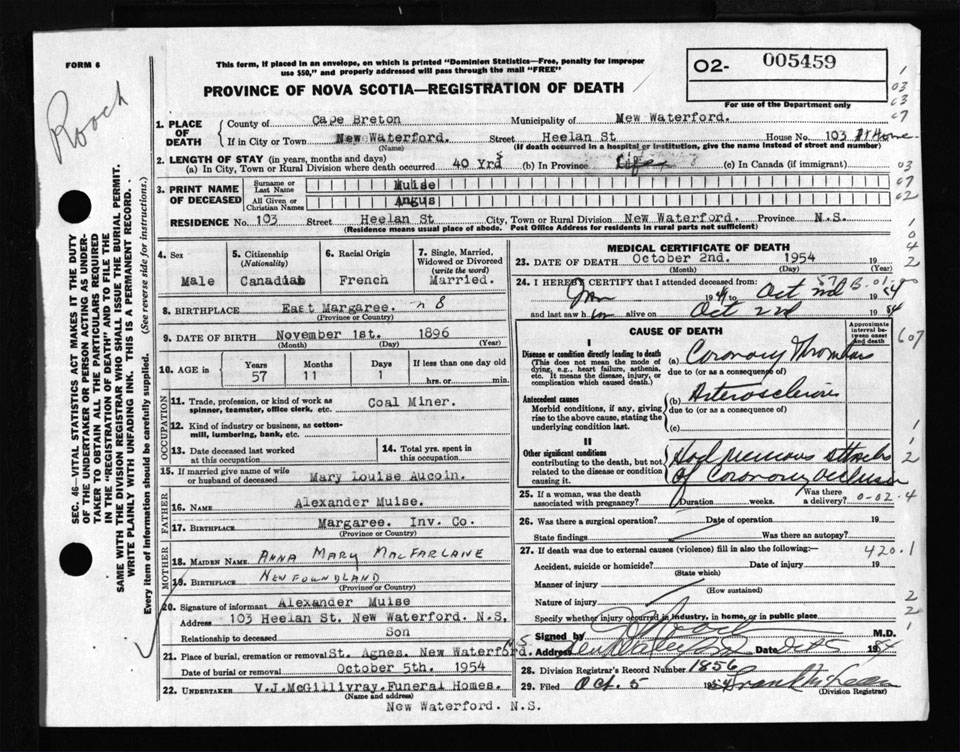 FORM 6
This form, if placed in an envelope, on which is printed "Dominion Statistics—Free, penalty for improper
use $50," and properly addressed will pass through the mail "FREE"
O2- 005459
For use of the Department only
PROVINCE OF NOVA SCOTIA—REGISTRATION OF DEATH
Rooch
SEC. 46—VITAL STATISTICS ACT MAKES IT THE DUTY
OF THE UNDERTAKER OR PERSON ACTING AS UNDER-
TAKER TO OBTAIN ALL THE PARTICULARS REQUIRED
IN THE "REGISTRATION OF DEATH" AND TO FILE THE
SAME WITH THE DIVISION REGISTRAR WHO SHALL ISSUE THE BURIAL PERMIT.
WRITE PLAINLY WITH UNFADING INK. THIS IS A PERMANENT RECORD.
Every item of information should be carefully supplied. (See reverse side for instructions.)
1. PLACE OF DEATH
County of Cape Breton Municipality of Mew Waterford.
If in City or Town New Waterford. Street Heelan St House No. 103 At Home
(Name) (If death occurred in a hospital or institution, give the name instead of street and number)
2. LENGTH OF STAY (in years, months and days)
(a) In City, Town or Rural Division where death occurred 40 Yrs (b) In Province Life (c) In Canada (if immigrant)
3. PRINT NAME OF DECEASED
Surname or Last Name Muise
All Given or Christian Names Angus
RESIDENCE No. 103 Street Heelan St City, Town or Rural Division New Waterford. Province N.S.
(Residence means usual place of abode. Post Office Address for residents in rural parts not sufficient)
4. Sex Male
5. Citizenship (Nationality) Canadian
6. Racial Origin French
7. Single, Married, Widowed or Divorced (write the word) Married.
8. BIRTHPLACE East Margaree. n S
(Province or Country)
9. DATE OF BIRTH November 1st. 1896
(Month) (Day) (Year)
10. AGE in Years 57 Months 11 Days 1 If less than one day old hrs. or min.
OCCUPATION
11. Trade, profession, or kind of work as spinner, teamster, office clerk, etc. Coal Miner.
12. Kind of industry or business, as cotton-mill, lumbering, bank, etc.
13. Date deceased last worked at this occupation
14. Total yrs. spent in this occupation
15. If married give name of wife or husband of deceased Mary Louise Aucoin.
FATHER
16. Name Alexander Muise.
17. Birthplace Margaree. Inv. Co.
(Province or Country)
MOTHER
18. Maiden Name ANNA MARY MACFARLANE
19. Birthplace NEWFOUNDLAND
(Province or Country)
20. Signature of informant Alexander Muise
Address 103 Heelan St. New Waterford. N.S.
Relationship to deceased Son
21. Place of burial, cremation or removal St. Agnes. New Waterford. NS
Date of burial or removal October 5th. 1954
22. UNDERTAKER V.J.McGillivray.Funeral Homes.
(Name and address)
New Waterford. N.S.
MEDICAL CERTIFICATE OF DEATH
23. DATE OF DEATH October 2nd. 1954 19
(Month) (Day) (Year)
24. I HEREBY CERTIFY that I attended deceased from:
Jan 19 to Oct 2nd 1954
and last saw h im alive on Oct 2nd 1954
CAUSE OF DEATH
Approximate interval between onset and death
I
Disease or condition directly leading to death
(This does not mean the mode of dying, e.g., heart failure, asthenia, etc. It means the disease, injury, or complication which caused death.)
(a) Coronary Thrombosis
due to (or as a consequence of)
Antecedent causes
Morbid conditions, if any, giving rise to the above cause, stating the underlying condition last.
(b) Arterosclerosis
due to (or as a consequence of)
(c)
II
Other significant conditions
contributing to the death, but not related to the disease or condition causing it.
Had previous attacks
of coronary occlusion
25. If a woman, was the death associated with pregnancy? Duration weeks. Was there a delivery?
0-02.4
26. Was there a surgical operation? Date of operation 19
State findings Was there an autopsy?
27. If death was due to external causes (violence) fill in also the following:— 420.1
Accident, suicide or homicide? Date of injury 19
(State which)
Manner of injury
(How sustained)
Nature of injury
Specify whether injury occurred in industry, in home, or in public place
Signed by M.D.
Address New Waterford Date Oct 5 1954
28. Division Registrar's Record Number 1856
29. Filed Oct. 5 1954
(Division Registrar)
607